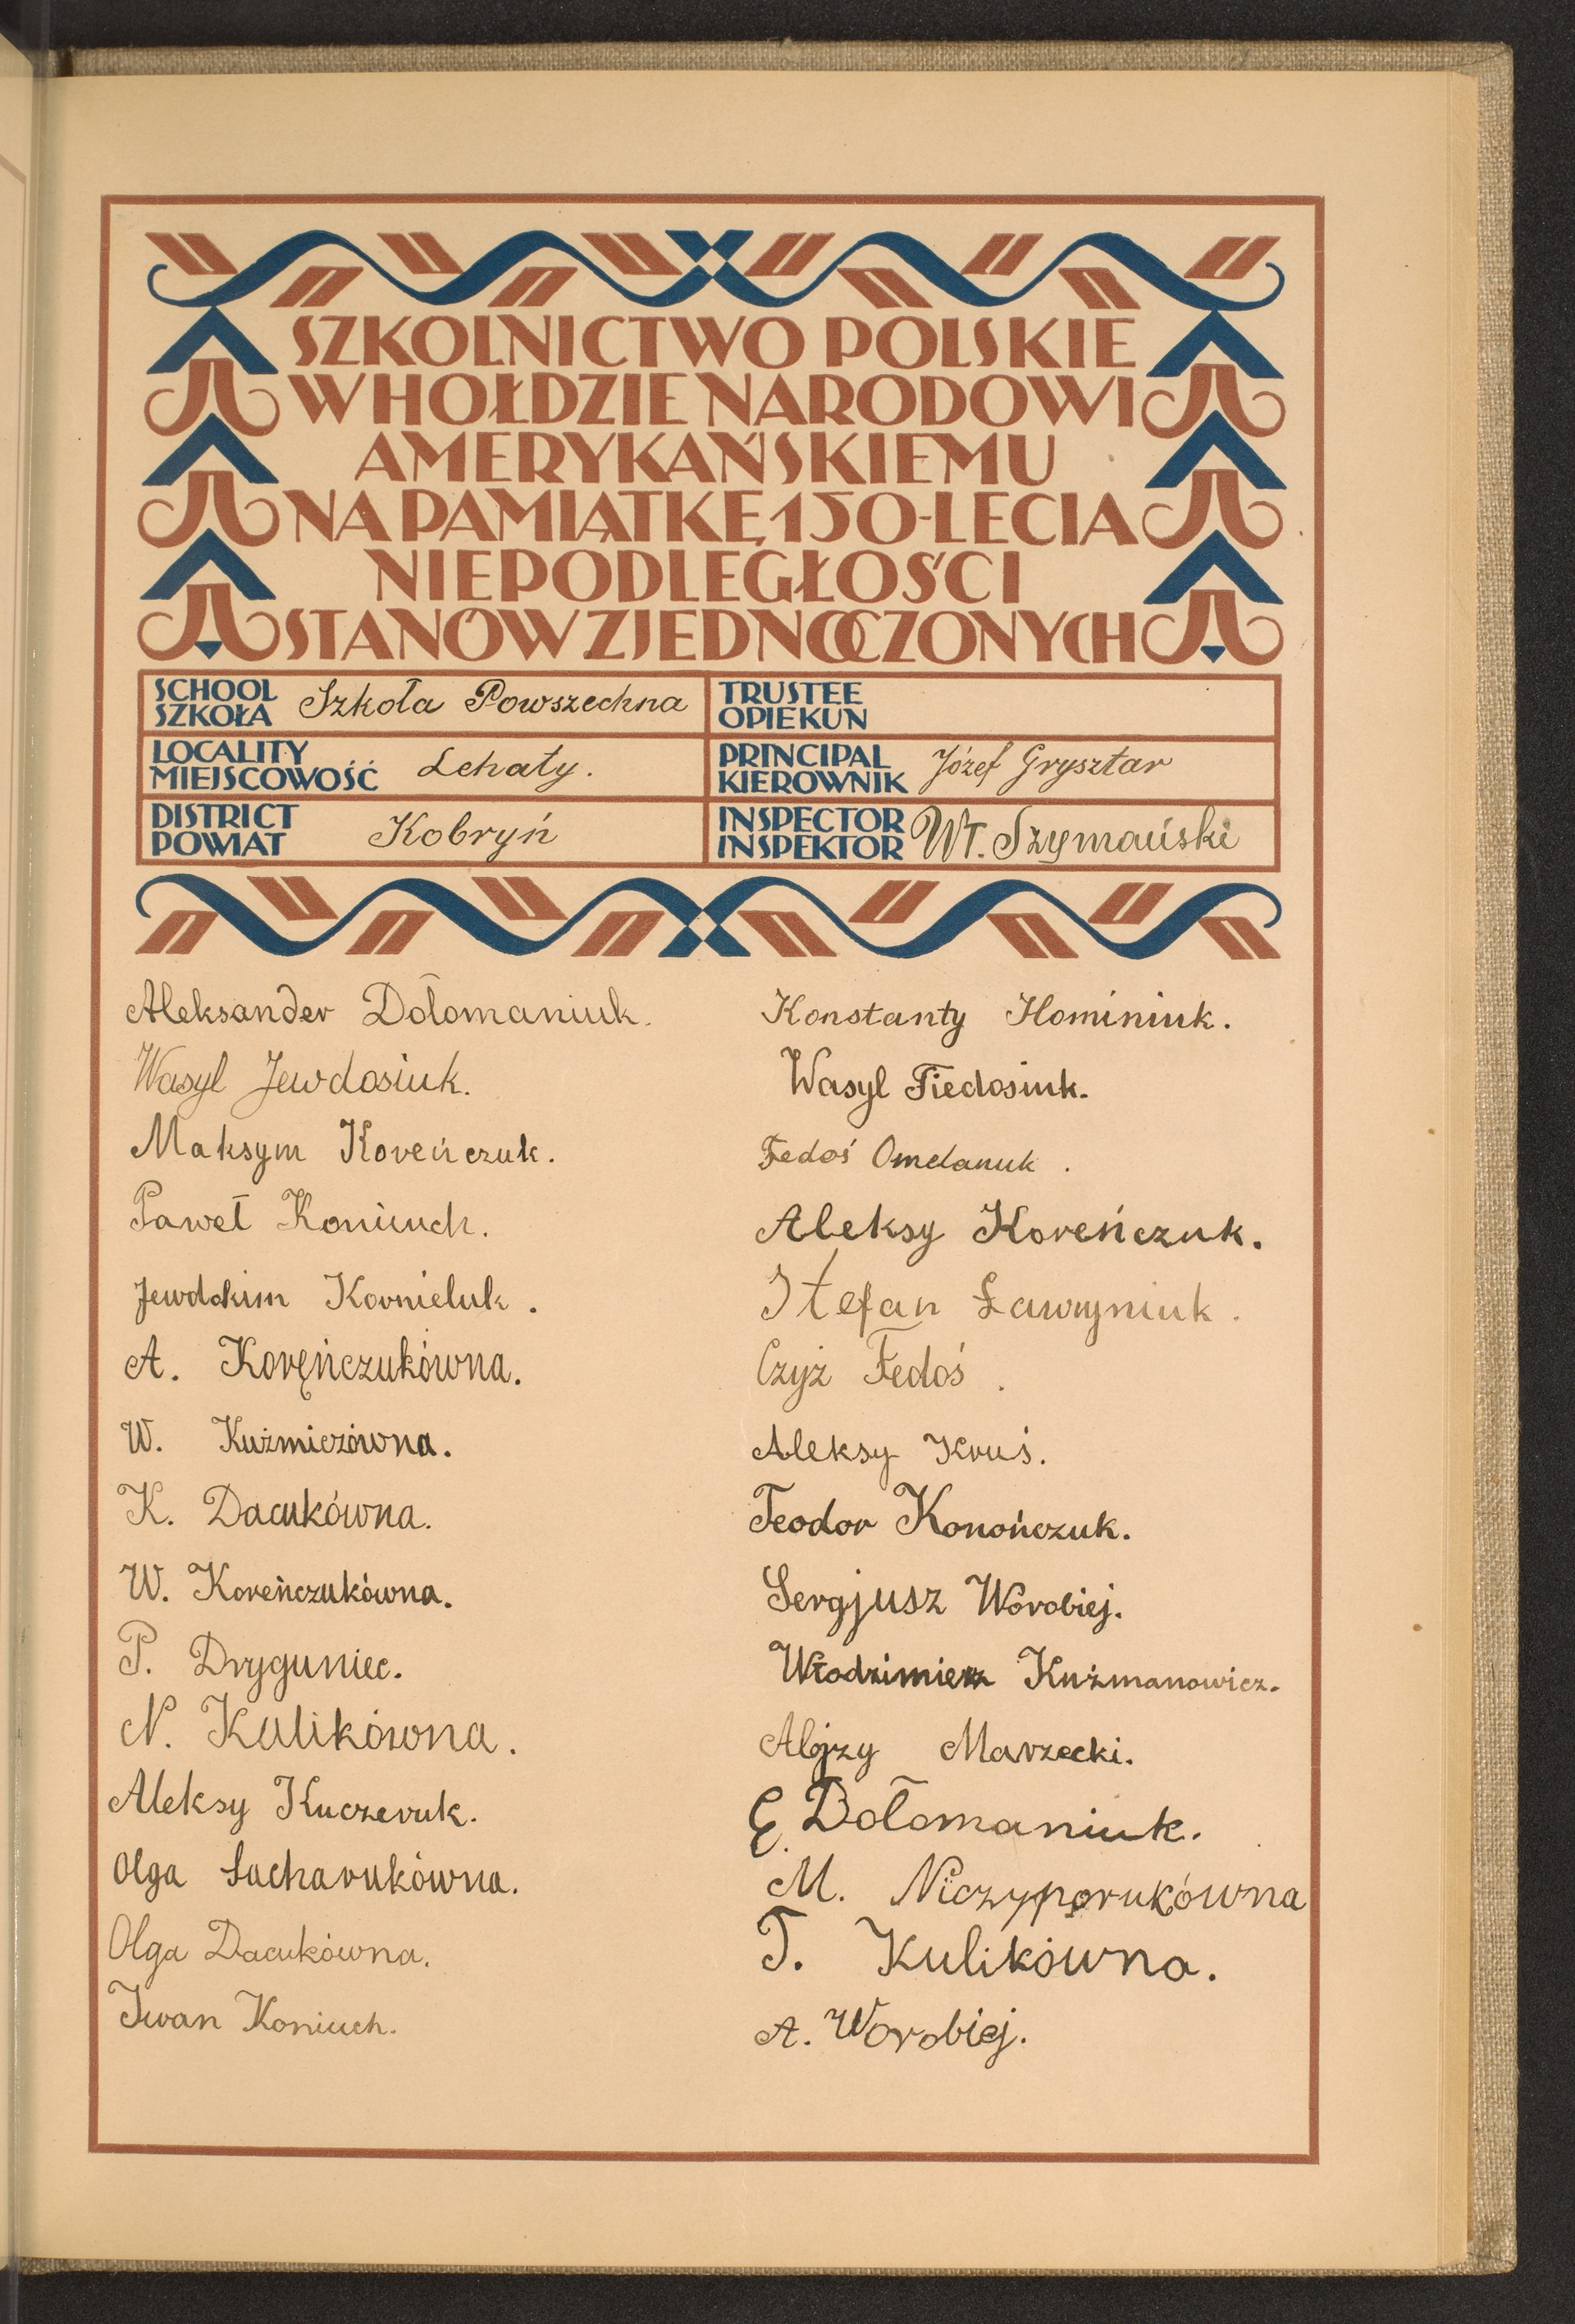 SZKOLNICTWO POLSKIE
W HOŁDZIE NARODOWI
AMERYKAŃSKIEMU
NA PAMIĄTKĘ 150-LECIA
NIEPODLEGŁOŚCI
STANÓW ZJEDNOCZONYCH
SCHOOL
SZKOŁA
Szkoła Powszechna
TRUSTEE
OPIEKUN
LOCALITY
MIEJSCOWOŚĆ
Lehaty.
PRINCIPAL
KIEROWNIK
Józef Grysztar
DISTRICT
POWIAT
Kobryń
INSPECTOR
INSPEKTOR
Wł. Szymański
Aleksander Dołomaniuk.
Wasyl Jewdosiuk.
Maksym Koreńczuk.
Paweł Koniuch.
Jewdokim Kornieluk.
A. Koręńczukówna.
W. Kuźmiczówna.
K. Dacukówna.
W. Koreńczukówna.
P. Dryguniec.
N. Kulikówna.
Aleksy Kuczeruk.
Olga Sacharukówna.
Olga Dacukówna.
Iwan Koniuch.
Konstanty Hominiuk.
Wasyl Fiedosiuk.
Fedoś Omelanuk.
Aleksy Koreńczuk.
Stefan Ławryniuk.
Czyż Fedoś.
Aleksy Kruś.
Teodor Konończuk.
Sergjusz Worobiej.
Włodzimierz Kuźmanowicz.
Alojzy Marzecki.
E. Dołomaniuk.
M. Niczyporukówna
T. Kulikówna.
A. Worobiej.